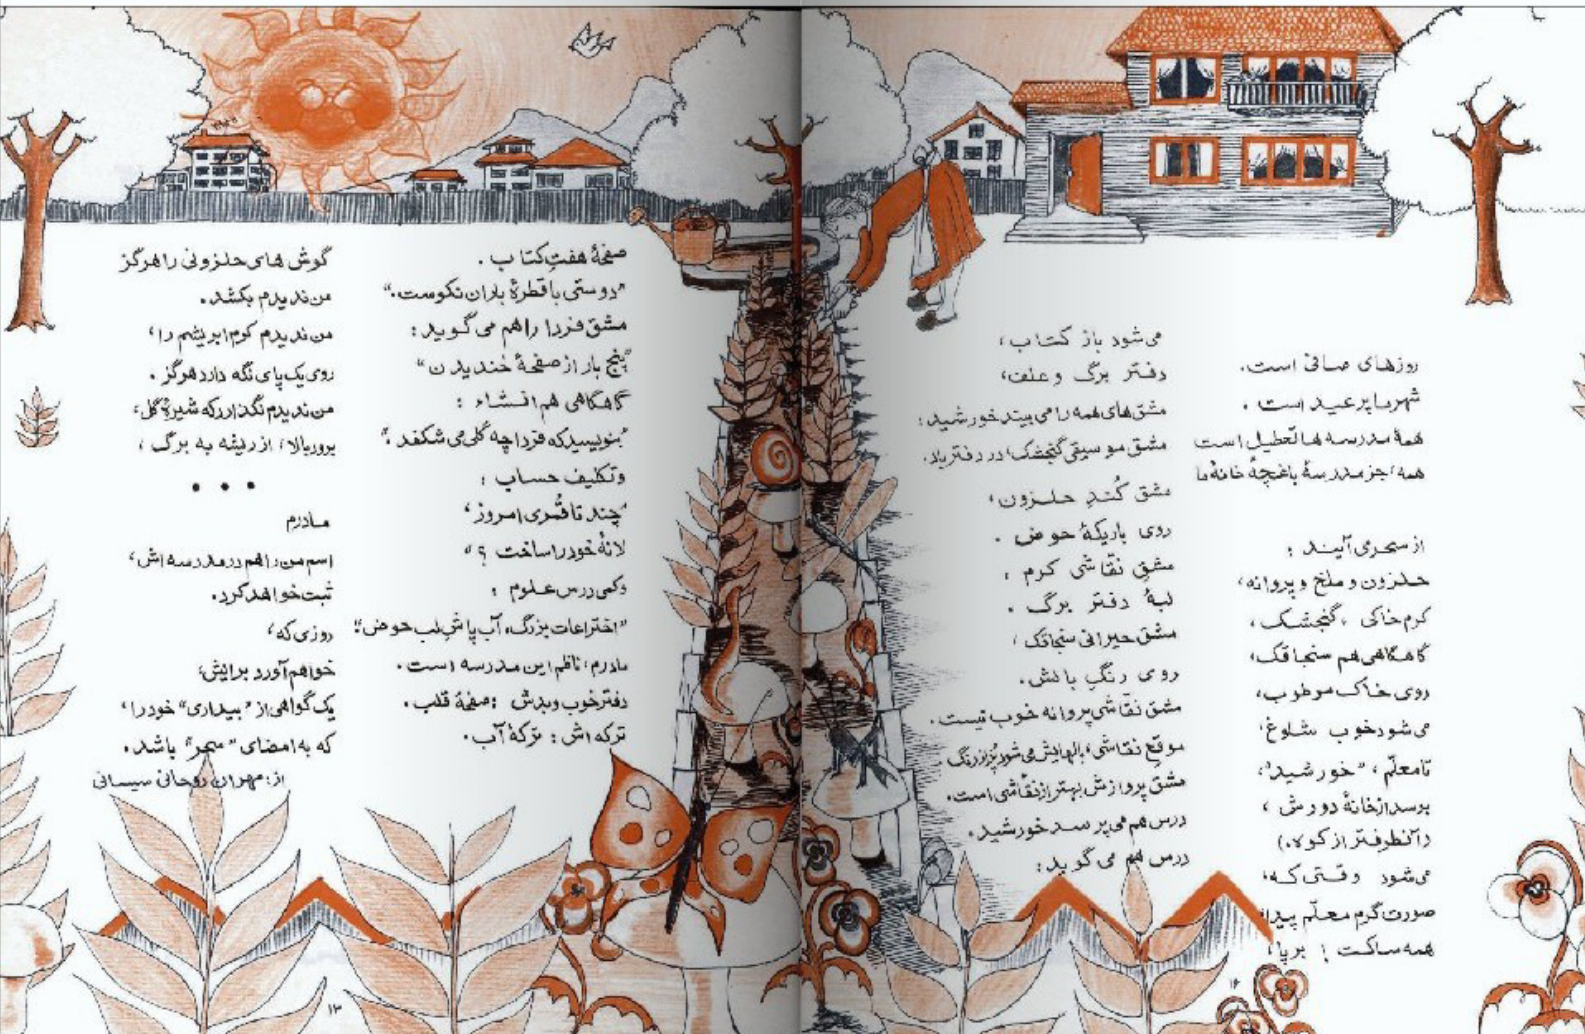 روزهای صافی است.
شهرما پر عید است.
همهٔ مدرسه ها تعطیل است
همه، جز مدرسهٔ باغچهٔ خانهٔ ما
از سحر می آیند :
حلزون و ملخ و پروانه،
کرم خاکی ، گنجشک ،
گاهگاهی هم سنجاقک،
روی خاک مرطوب،
می شود خوب شلوغ،
تا معلّم ، "خورشید"،
برسد از خانهٔ دورش ،
(آنطرفتر از کوه.)
می شود وقتی که،
صورت گرم معلّم پیدا،
همه ساکت ! بر پا،
می شود باز کتاب،
دفتر برگ و علف،
مشق های همه را می بیند خورشید:
مشق موسیقی گنجشک، در دفتر باد.
مشق کُندِ حلزون،
روی باریکهٔ حوض .
مشق نقّاشی کرم ،
لبهٔ دفتر برگ .
مشق حیرانی سنجاقک ،
روی رنگِ بالش.
مشق نقّاشی پروانه خوب نیست.
موقع نقّاشی، بالهایش می شود پُر از رنگ.
مشق پروازش بهتر از نقّاشی است.
درس هم می پرسد خورشید.
درس هم می گوید:
۱۶
صفحهٔ هفتِ کتاب .
"دوستی با قطرهٔ باران نکوست."
مشق فردا را هم می گوید:
"پنج بار از صفحهٔ خندیدن"
گاهگاهی هم انشاء :
"بنویسید که فردا چه گلی می شکفد ."
وتکلیف حساب :
"چند تا قُمری امروز،
لانهٔ خود را ساخت ؟"
وکمی درس علوم :
"اختراعات بزرگ، آب پاشِ لب حوض":
مادرم، ناظم این مدرسه است.
دفتر خوب وبدش : صفحهٔ قلب .
ترکه اش : ترکهٔ آب.
گوش های حلزونی را هرگز
من ندیدم بکشد.
من ندیدم کرم ابریشم را،
روی یک پای نگه دارد هرگز .
من ندیدم نگذارد که شیرهٔ گل،
برود بالا، از ریشه به برگ ،
• • •
مادرم
اسم من را هم در مدرسه اش،
ثبت خواهد کرد.
روزی که،
خواهم آورد برایش،
یک گواهی از "بیداری" خود را،
که به امضای "سحر" باشد.
از: مهران روحانی سیسانی
۱۳